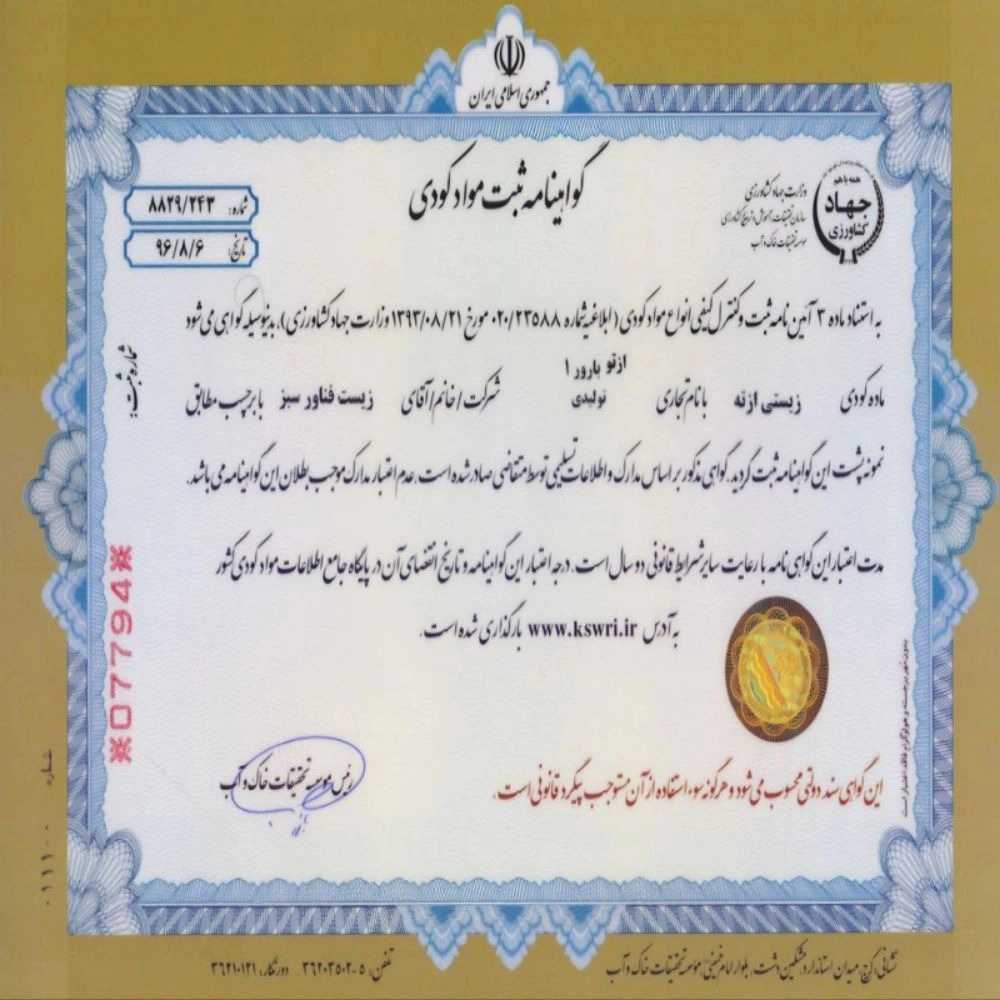 جمهوری اسلامی ایران
همه با هم
جهاد
کشاورزی
وزارت جهاد کشاورزی
سازمان تحقیقات، آموزش و ترویج کشاورزی
موسسه تحقیقات خاک و آب
گواهینامه ثبت مواد کودی
شماره: ۸۸۲۹/۲۴۳
تاریخ: ۹۶/۸/۶
به استناد ماده ۳ آیین نامه ثبت و کنترل کیفی انواع مواد کودی (ابلاغیه شماره ۰۲۰/۲۳۵۸۸ مورخ ۱۳۹۳/۰۸/۲۱ وزارت جهاد کشاورزی)، بدینوسیله گواهی می شود
ماده کودی زیستی ازته با نام تجاری ازتو بارور ۱ تولیدی شرکت/خانم/آقای زیست فناور سبز با برچسب مطابق
نمونه پشت این گواهینامه ثبت گردید. گواهی مذکور بر اساس مدارک و اطلاعات تسلیمی توسط متقاضی صادر شده است. عدم اعتبار مدارک موجب بطلان این گواهینامه می باشد.
مدت اعتبار این گواهی نامه با رعایت سایر شرایط قانونی دو سال است. درجه اعتبار این گواهینامه و تاریخ انقضای آن در پایگاه جامع اطلاعات مواد کودی کشور
به آدرس www.kswri.ir بارگذاری شده است.
شماره ثبت:
※07794※
رئیس موسسه تحقیقات خاک و آب
این گواهی سند دولتی محسوب می شود و هرگونه سوء استفاده از آن مستوجب پیگرد قانونی است.
بدون مهر برجسته و هولوگرام فاقد اعتبار است
شماره ۰۱۱۱۰۰
نشانی: کرج، میدان استاندارد، مشکین دشت، بلوار امام خمینی، موسسه تحقیقات خاک و آب
تلفن: ۵-۳۶۲۰۳۵۰۲ دورنگار: ۳۶۲۱۰۱۲۱